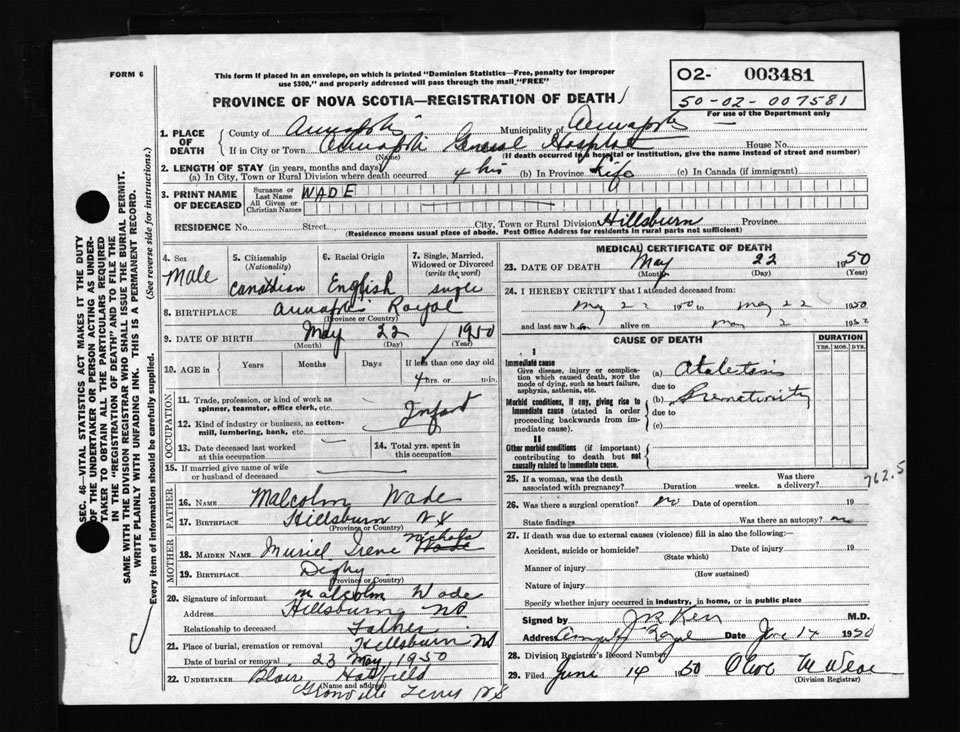 FORM 6
This form if placed in an envelope, on which is printed "Dominion Statistics—Free, penalty for improper
use $300," and properly addressed will pass through the mail "FREE"
02- 003481
50-02-007581
For use of the Department only
PROVINCE OF NOVA SCOTIA—REGISTRATION OF DEATH
1. PLACE OF DEATH
County of Annapolis Municipality of Annapolis
If in City or Town Annapolis General Hospital House No.
(Name) (If death occurred in a hospital or institution, give the name instead of street and number)
2. LENGTH OF STAY (in years, months and days)
(a) In City, Town or Rural Division where death occurred 4 hrs (b) In Province Life (c) In Canada (if immigrant)
3. PRINT NAME OF DECEASED
Surname or Last Name WADE
All Given or Christian Names
RESIDENCE No. Street City, Town or Rural Division Hillsburn Province
(Residence means usual place of abode. Post Office Address for residents in rural parts not sufficient)
4. Sex
Male
5. Citizenship
(Nationality)
Canadian
6. Racial Origin
English
7. Single, Married,
Widowed or Divorced
(write the word)
single
8. BIRTHPLACE Annapolis Royal
(Province or Country)
9. DATE OF BIRTH May 22 1950
(Month) (Day) (Year)
10. AGE in
Years Months Days If less than one day old
4 hrs. or min.
OCCUPATION
11. Trade, profession or kind of work as
spinner, teamster, office clerk, etc. Infant
12. Kind of industry or business, as cotton-
mill, lumbering, bank, etc.
13. Date deceased last worked
at this occupation
14. Total yrs. spent in
this occupation
15. If married give name of wife
or husband of deceased
FATHER
16. NAME Malcolm Wade
17. BIRTHPLACE Hillsburn NS
(Province or Country)
MOTHER
18. MAIDEN NAME Muriel Irene Nichols Wade
19. BIRTHPLACE Digby
(Province or Country)
20. Signature of informant Malcolm Wade
Address Hillsburn NS
Relationship to deceased Father
21. Place of burial, cremation or removal Hillsburn NS
Date of burial or removal 23 May, 1950
22. UNDERTAKER Blair Hatfield
(Name and address)
Granville Ferry NS
MEDICAL CERTIFICATE OF DEATH
23. DATE OF DEATH May 22 1950
(Month) (Day) (Year)
24. I HEREBY CERTIFY that I attended deceased from:
May 22 1950 to May 22 1950
and last saw h alive on May 2 19
CAUSE OF DEATH
DURATION
YRS. MOS. DYS.
I
Immediate cause
Give disease, injury or complica-
tion which caused death, NOT the
mode of dying, such as heart failure,
asphyxia, asthenia, etc.
(a) Atalectasis
due to
Morbid conditions, if any, giving rise to
immediate cause (stated in order
proceeding backwards from im-
mediate cause).
(b) Prematurity
due to
(c)
II
Other morbid conditions (if important)
contributing to death but not
causally related to immediate cause.
762.5
25. If a woman, was the death
associated with pregnancy? Duration weeks. Was there
a delivery?
26. Was there a surgical operation? no Date of operation 19
State findings Was there an autopsy? no
27. If death was due to external causes (violence) fill in also the following:—
Accident, suicide or homicide? Date of injury 19
(State which)
Manner of injury
(How sustained)
Nature of injury
Specify whether injury occurred in industry, in home, or in public place
Signed by Kerr M.D.
Address Royal Date June 14 1950
28. Division Registrar's Record Number
29. Filed June 14 50 Olive M
(Division Registrar)
SEC. 46—VITAL STATISTICS ACT MAKES IT THE DUTY
OF THE UNDERTAKER OR PERSON ACTING AS UNDER-
TAKER TO OBTAIN ALL THE PARTICULARS REQUIRED
IN THE "REGISTRATION OF DEATH" AND TO FILE THE
SAME WITH THE DIVISION REGISTRAR WHO SHALL ISSUE THE BURIAL PERMIT.
WRITE PLAINLY WITH UNFADING INK. THIS IS A PERMANENT RECORD.
Every item of information should be carefully supplied. (See reverse side for instructions.)